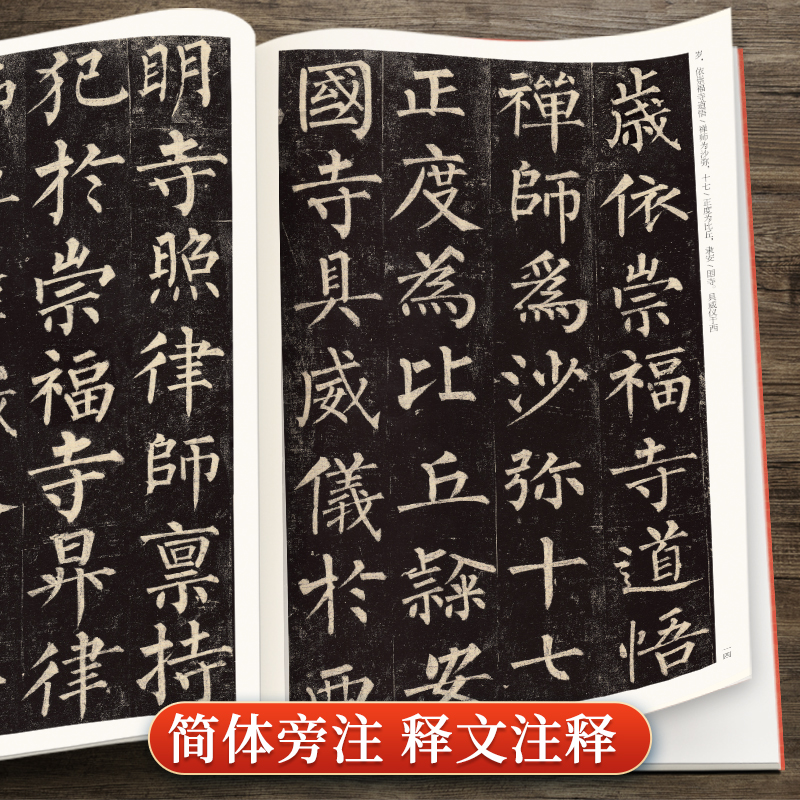 歲依崇福寺道悟
禪師為沙弥十七
正度為比丘隸安
國寺具威儀於西
明寺照律師禀持
犯於崇福寺昇律
岁，依崇福寺道悟/禅师为沙弥，十七/正度为比丘，隶安/国寺，具威仪于西
一四
简体旁注 释文注释